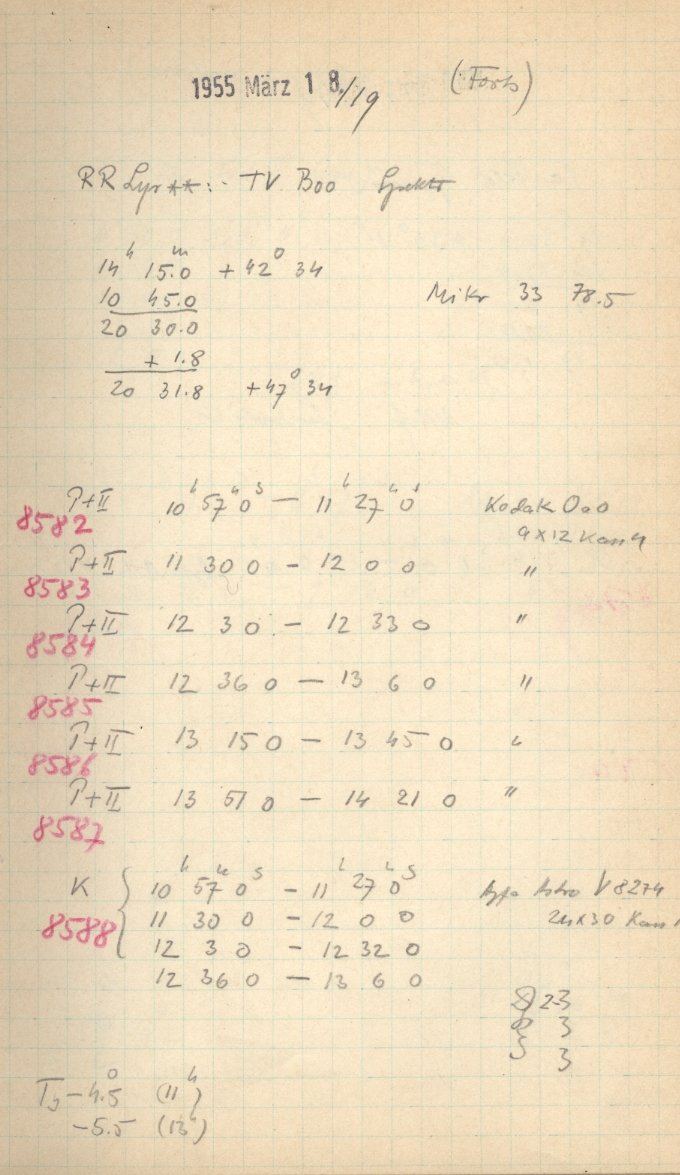 1955 März 1 8./19 (Forts)
RR Lyr **: - TV Boo Spektr
14h 15.0m +42° 34
10 45.0 Mikr 33 78.5
20 30.0
+ 1.8
20 31.8 +47° 34
P+II 10h 57m 0s — 11h 27m 0s Kodak OaO
8582 9x12 Kass
P+II 11 30 0 - 12 0 0 "
8583
P+II 12 3 0 - 12 33 0 "
8584
P+II 12 36 0 — 13 6 0 "
8585
P+II 13 15 0 — 13 45 0 "
8586
P+II 13 51 0 - 14 21 0 "
8587
K 10h 57m 0s - 11h 27m 0s Agfa Astro V8274
8588 11 30 0 - 12 0 0 24x30 Kass
12 3 0 - 12 32 0
12 36 0 — 13 6 0
2-3
3
S 3
-4.5° (11h)
-5.5 (13h)